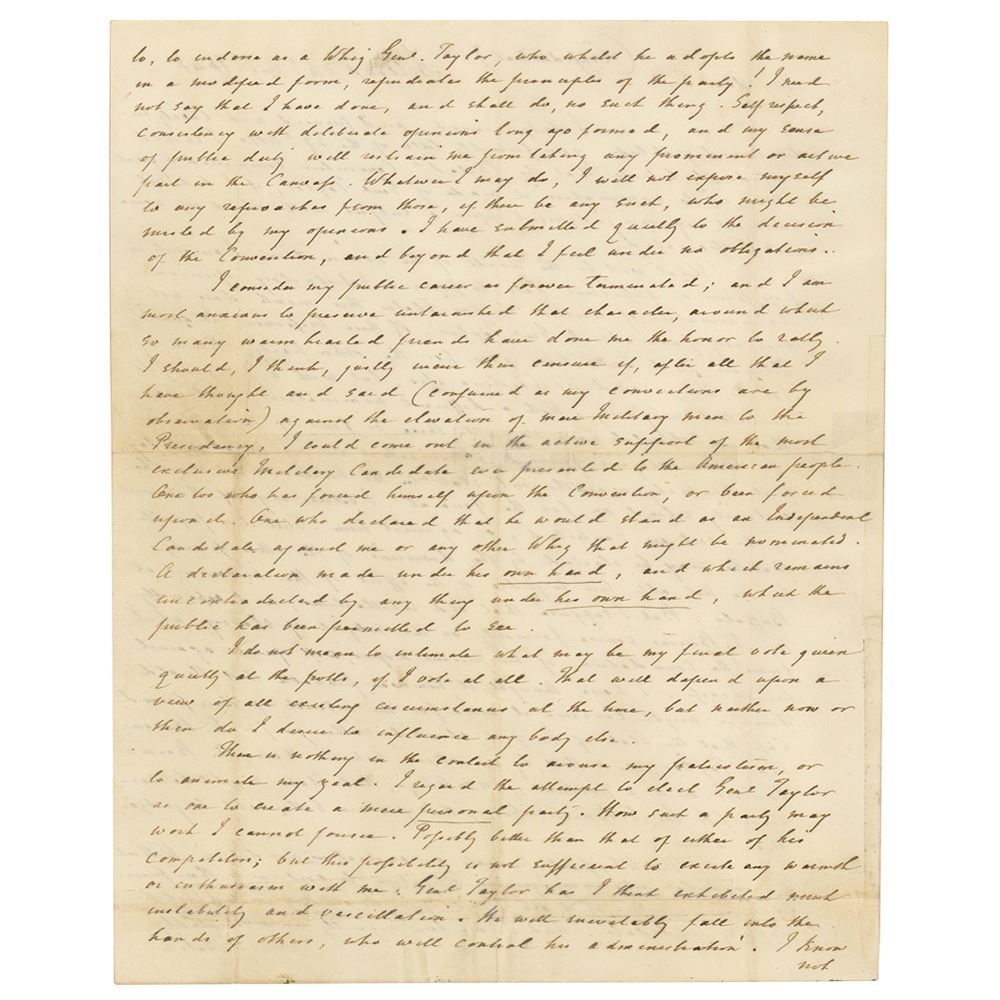 to, to endorse as a Whig Genl. Taylor, who whilst he adopts the name
in a modified form, repudiates the principles of the party! I need
not say that I have done, and shall do, no such thing. Self respect,
consistency with deliberate opinions long ago formed, and my sense
of public duty will restrain me from taking any prominent or active
part in the Canvass. Whatever I may do, I will not expose myself
to any reproaches from those, if there be any such, who might be
misled by my opinions. I have submitted quietly to the decision
of the Convention, and beyond that I feel under no obligations..
I consider my public career as forever terminated; and I am
most anxious to preserve untarnished that character, around which
so many warm hearted friends have done me the honor to rally.
I should, I think, justly incur their censure if, after all that I
have thought and said (confirmed as my convictions are by
observation) against the elevation of mere Military men to the
Presidency, I could come out in the active support of the most
exclusive Military Candidate ever presented to the American people.
One too who has forced himself upon the Convention, or been forced
upon it. One who declared that he would stand as an Independent
Candidate against me or any other Whig that might be nominated.
A declaration made under his own hand, and which remains
uncontradicted by any thing under his own hand, which the
public has been permitted to see.
I do not mean to intimate what may be my final vote given
quietly at the polls, if I vote at all. That will depend upon a
view of all existing circumstances at the time, but neither now or
then do I desire to influence any body else.
There is nothing in the contest to arouse my patriotism, or
to animate my zeal. I regard the attempt to elect Genl Taylor
as one to create a mere personal party. How such a party may
work I cannot foresee. Possibly better than that of either of his
competitors; but this possibility is not sufficient to excite any warmth
or enthusiasm with me. Genl Taylor has I think exhibited much
instability and vacillation. He will inevitably fall into the
hands of others, who will control his administration. I know
not